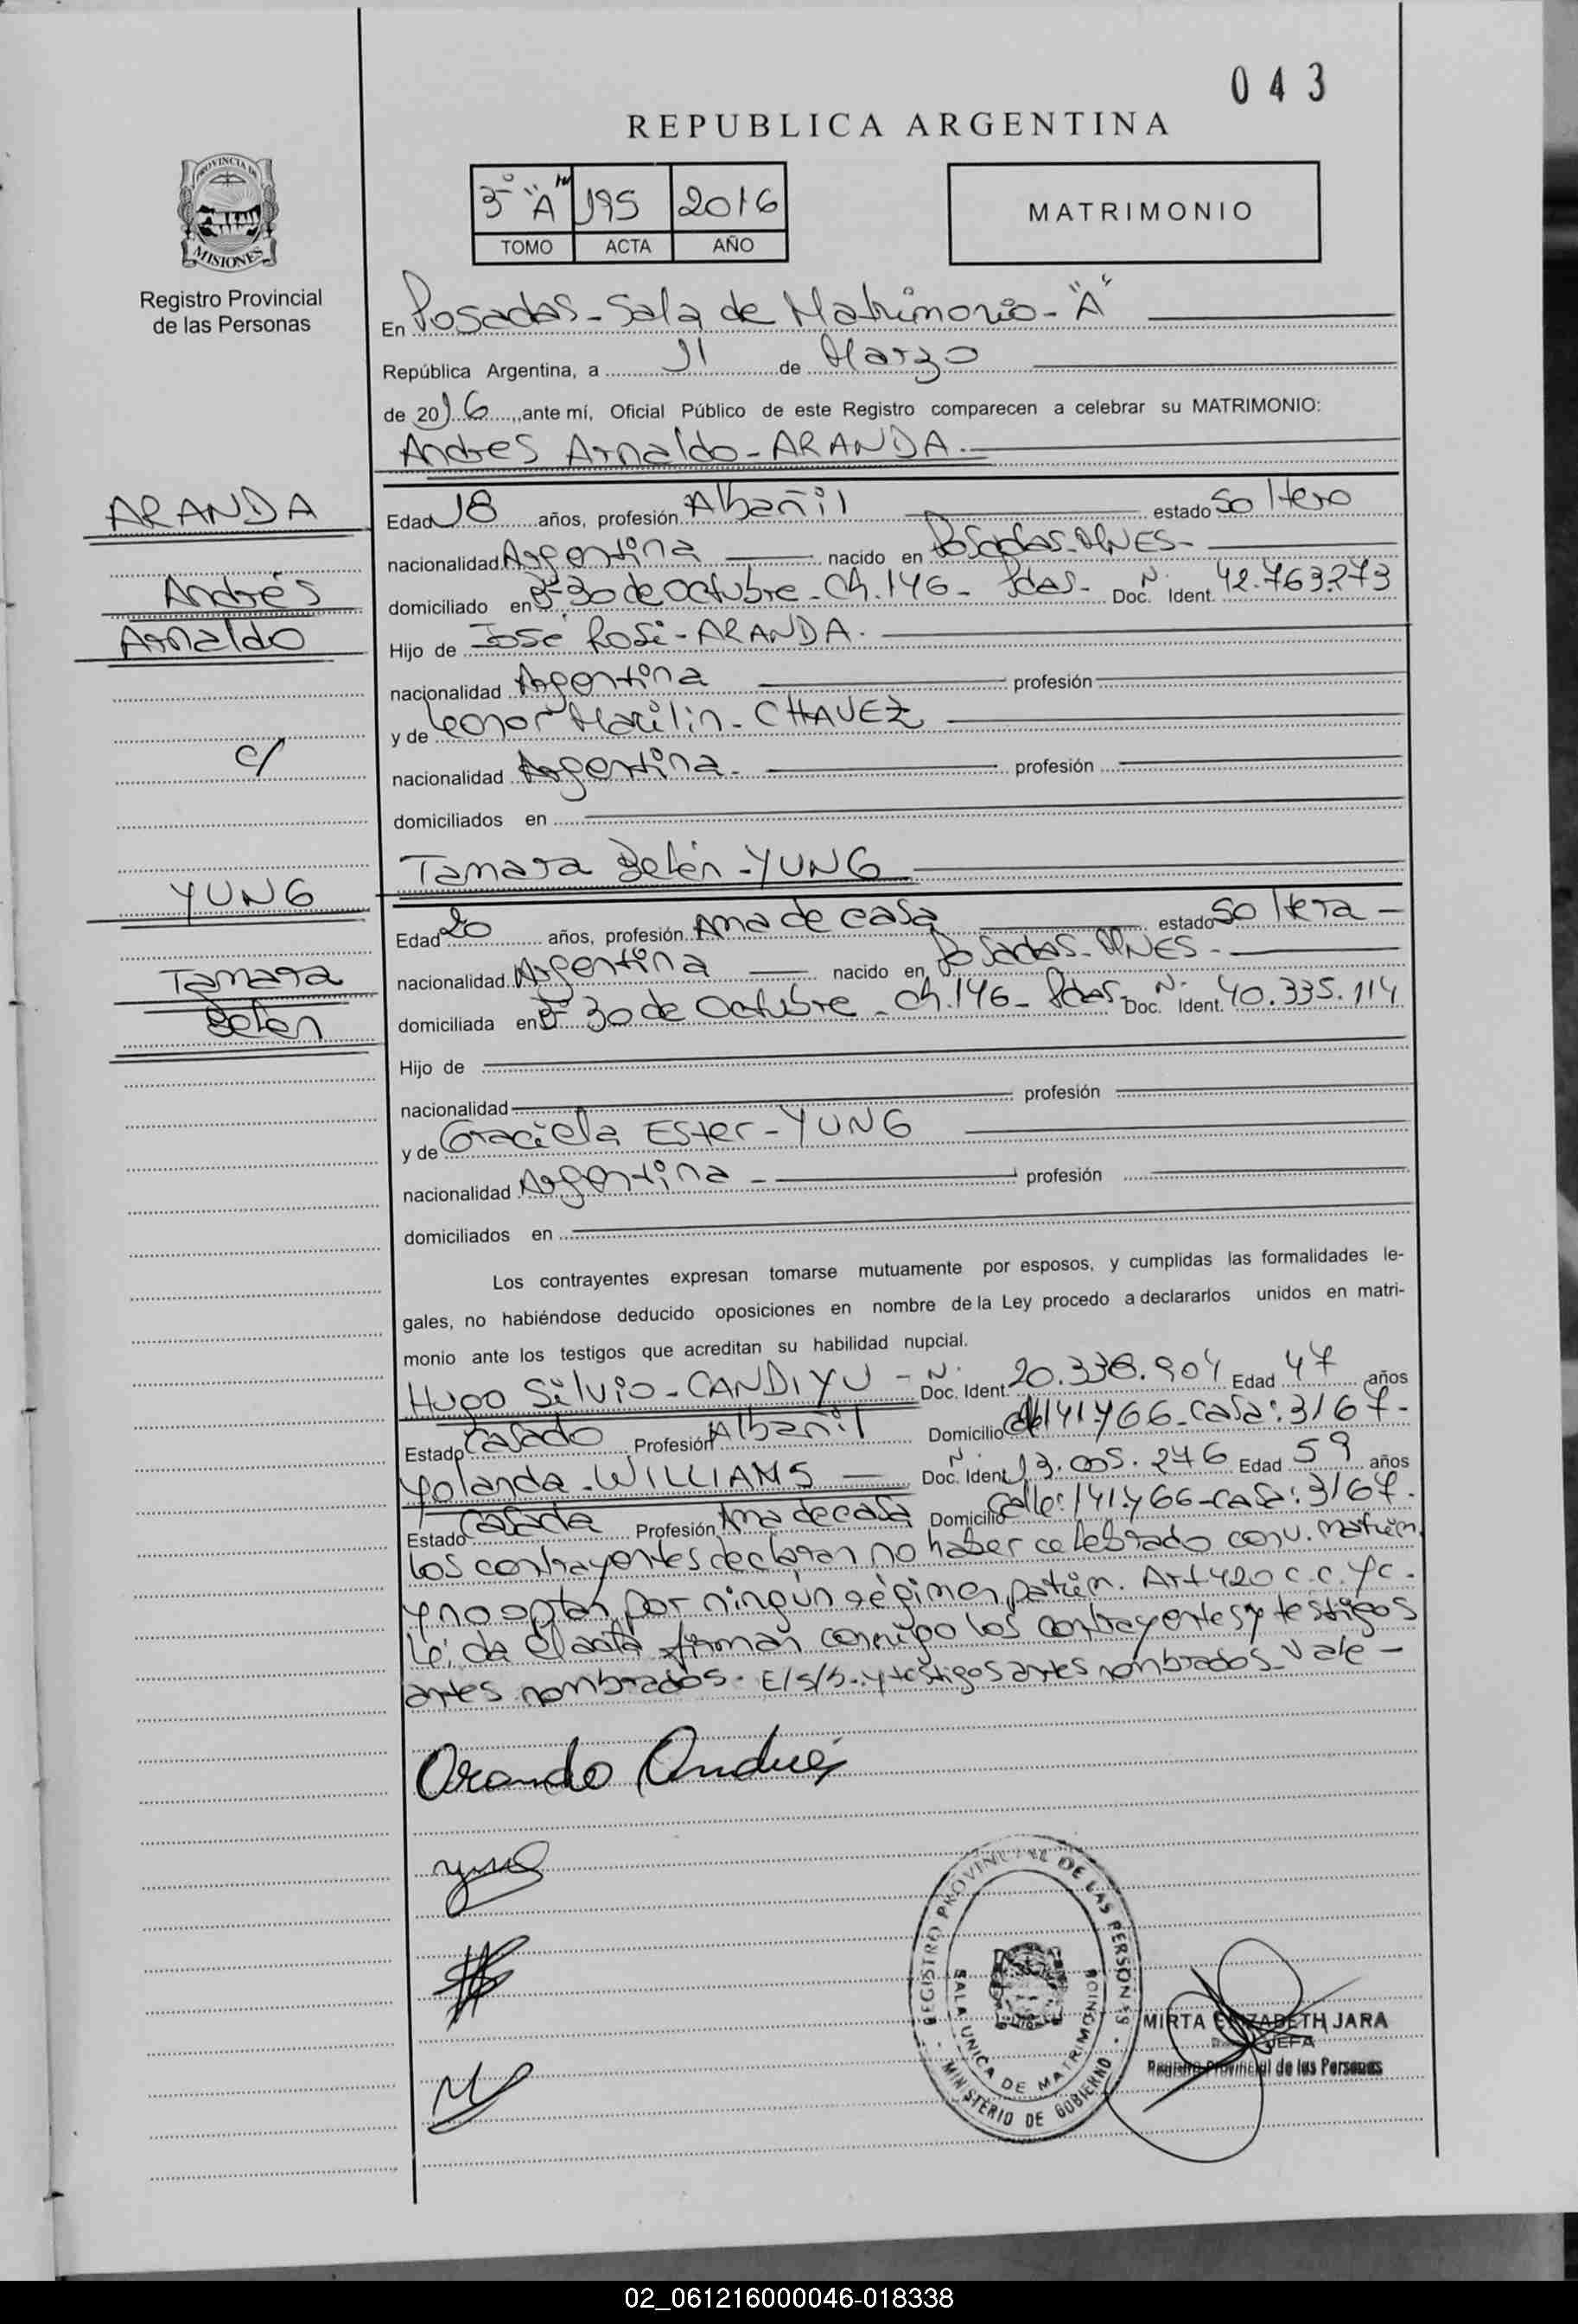 043
REPUBLICA ARGENTINA
PROVINCIA DE
MISIONES
Registro Provincial
de las Personas
3º "A" 195 2016
TOMO ACTA AÑO
MATRIMONIO
En Posadas - Sala de Matrimonio - "A"
República Argentina, a 11 de Marzo
de 2016, ante mí, Oficial Público de este Registro comparecen a celebrar su MATRIMONIO:
Andres Arnaldo - ARANDA.
ARANDA
Andrés
Arnaldo
c/
YUNG
Tamara
Belén
Edad 18 años, profesión Albañil estado soltero
nacionalidad Argentina nacido en Posadas - MNES -
domiciliado en Bº 30 de Octubre - Ch. 146 - Pdas - Doc. Nº Ident. 42.763.273
Hijo de José Rosi - ARANDA.
nacionalidad Argentina profesión
y de Leonor Marilin - CHAVEZ
nacionalidad Argentina. profesión
domiciliados en
Tamara Belén - YUNG
Edad 20 años, profesión Ama de casa estado soltera -
nacionalidad Argentina nacido en Posadas - MNES -
domiciliada en Bº 30 de Octubre - Ch. 146 - Pdas - Doc. Nº Ident. 40.335.114
Hijo de
nacionalidad profesión
y de Graciela Ester - YUNG
nacionalidad Argentina - profesión
domiciliados en
Los contrayentes expresan tomarse mutuamente por esposos, y cumplidas las formalidades le-
gales, no habiéndose deducido oposiciones en nombre de la Ley procedo a declararlos unidos en matri-
monio ante los testigos que acreditan su habilidad nupcial.
Hugo Silvio - CANDIYU - Doc. Nº Ident. 20.338.904 Edad 47 años
Estado Casado Profesión Albañil Domicilio 141.y66 - Casa: 3167 -
Yolanda - WILLIAMS - Doc. Nº Ident. 13.005.276 Edad 59 años
Estado Casada Profesión Ama de casa Domicilio Calle: 141.y66 - Casa: 3167.
Los contrayentes declaran no haber celebrado conv. matrim.
y no optan por ningún régimen patrim. Art 420 C.C.yC.
Leída el acta firman conmigo los contrayentes y testigos
antes nombrados. E/S/b. y testigos antes nombrados - Vale -
Aranda Andrés
REGISTRO PROVINCIAL DE LAS PERSONAS
SALA UNICA DE MATRIMONIOS
MINISTERIO DE GOBIERNO
MIRTA ELIZABETH JARA
JEFA
Registro Provincial de las Personas
02_061216000046-018338